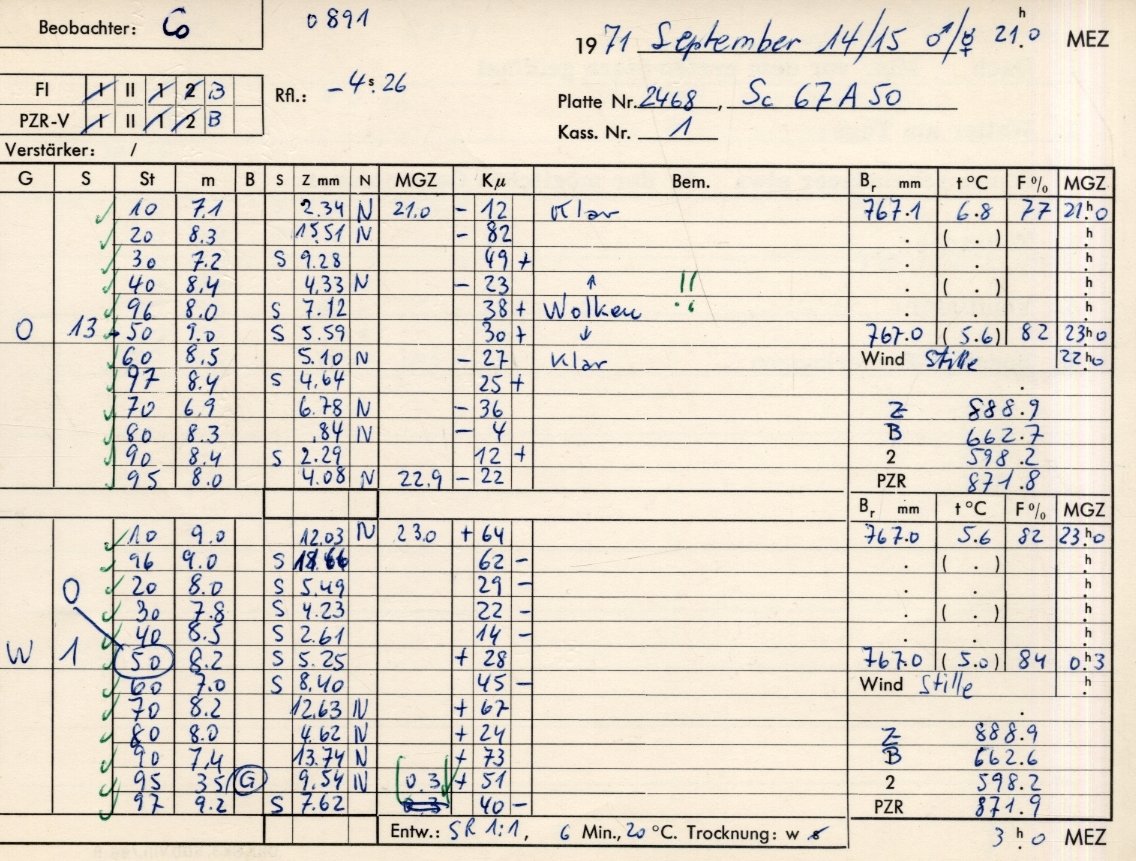 Beobachter: Co
0891
1971 September 14/15 ♂/☿ 21h.0 MEZ
FI I II 1 2 B
PZR-V I II 1 2 B
Rfl.: -4s.26
Platte Nr. 2468, Sc 67 A 50
Kass. Nr. 1
Verstärker: /
G S St m B S Z mm N MGZ Kµ Bem. Br mm t °C F % MGZ
10 7.1 2.34 N 21.0 - 12 Klar 767.1 6.8 77 21h.0
20 8.3 15.51 N - 82 . ( . ) h
30 7.2 S 9.28 49 + . . h
40 8.4 4.33 N - 23 ↑ !! . ( . ) h
96 8.0 S 7.12 38 + Wolken . . h
O 13 50 9.0 S 5.59 30 + ↓ 767.0 ( 5.6) 82 23h0
60 8.5 5.10 N - 27 Klar Wind Stille 22h0
97 8.4 S 4.64 25 + .
70 6.9 6.78 N - 36 Z 888.9
80 8.3 .84 N - 4 B 662.7
90 8.4 S 2.29 12 + 2 598.2
95 8.0 4.08 N 22.9 - 22 PZR 871.8
Br mm t °C F % MGZ
10 9.0 12.03 N 23.0 + 64 767.0 5.6 82 23h.0
96 9.0 S 62 - . ( . ) h
20 8.0 S 5.49 29 - . . h
O
30 7.8 S 4.23 22 - . ( . ) h
40 8.5 S 2.61 14 - . . h
W 1 50 8.2 S 5.25 + 28 767.0 ( 5.0) 84 0.h3
60 7.0 S 8.40 45 - Wind Stille h
70 8.2 12.63 N + 67 .
80 8.0 4.62 N + 24 Z 888.9
90 7.4 13.74 N + 73 B 662.6
95 35 G 9.54 N 0.3 + 51 2 598.2
97 9.2 S 7.62 0.3 40 - PZR 871.9
Entw.: SR 1:1, 6 Min., 20 °C. Trocknung: w
3h.0 MEZ